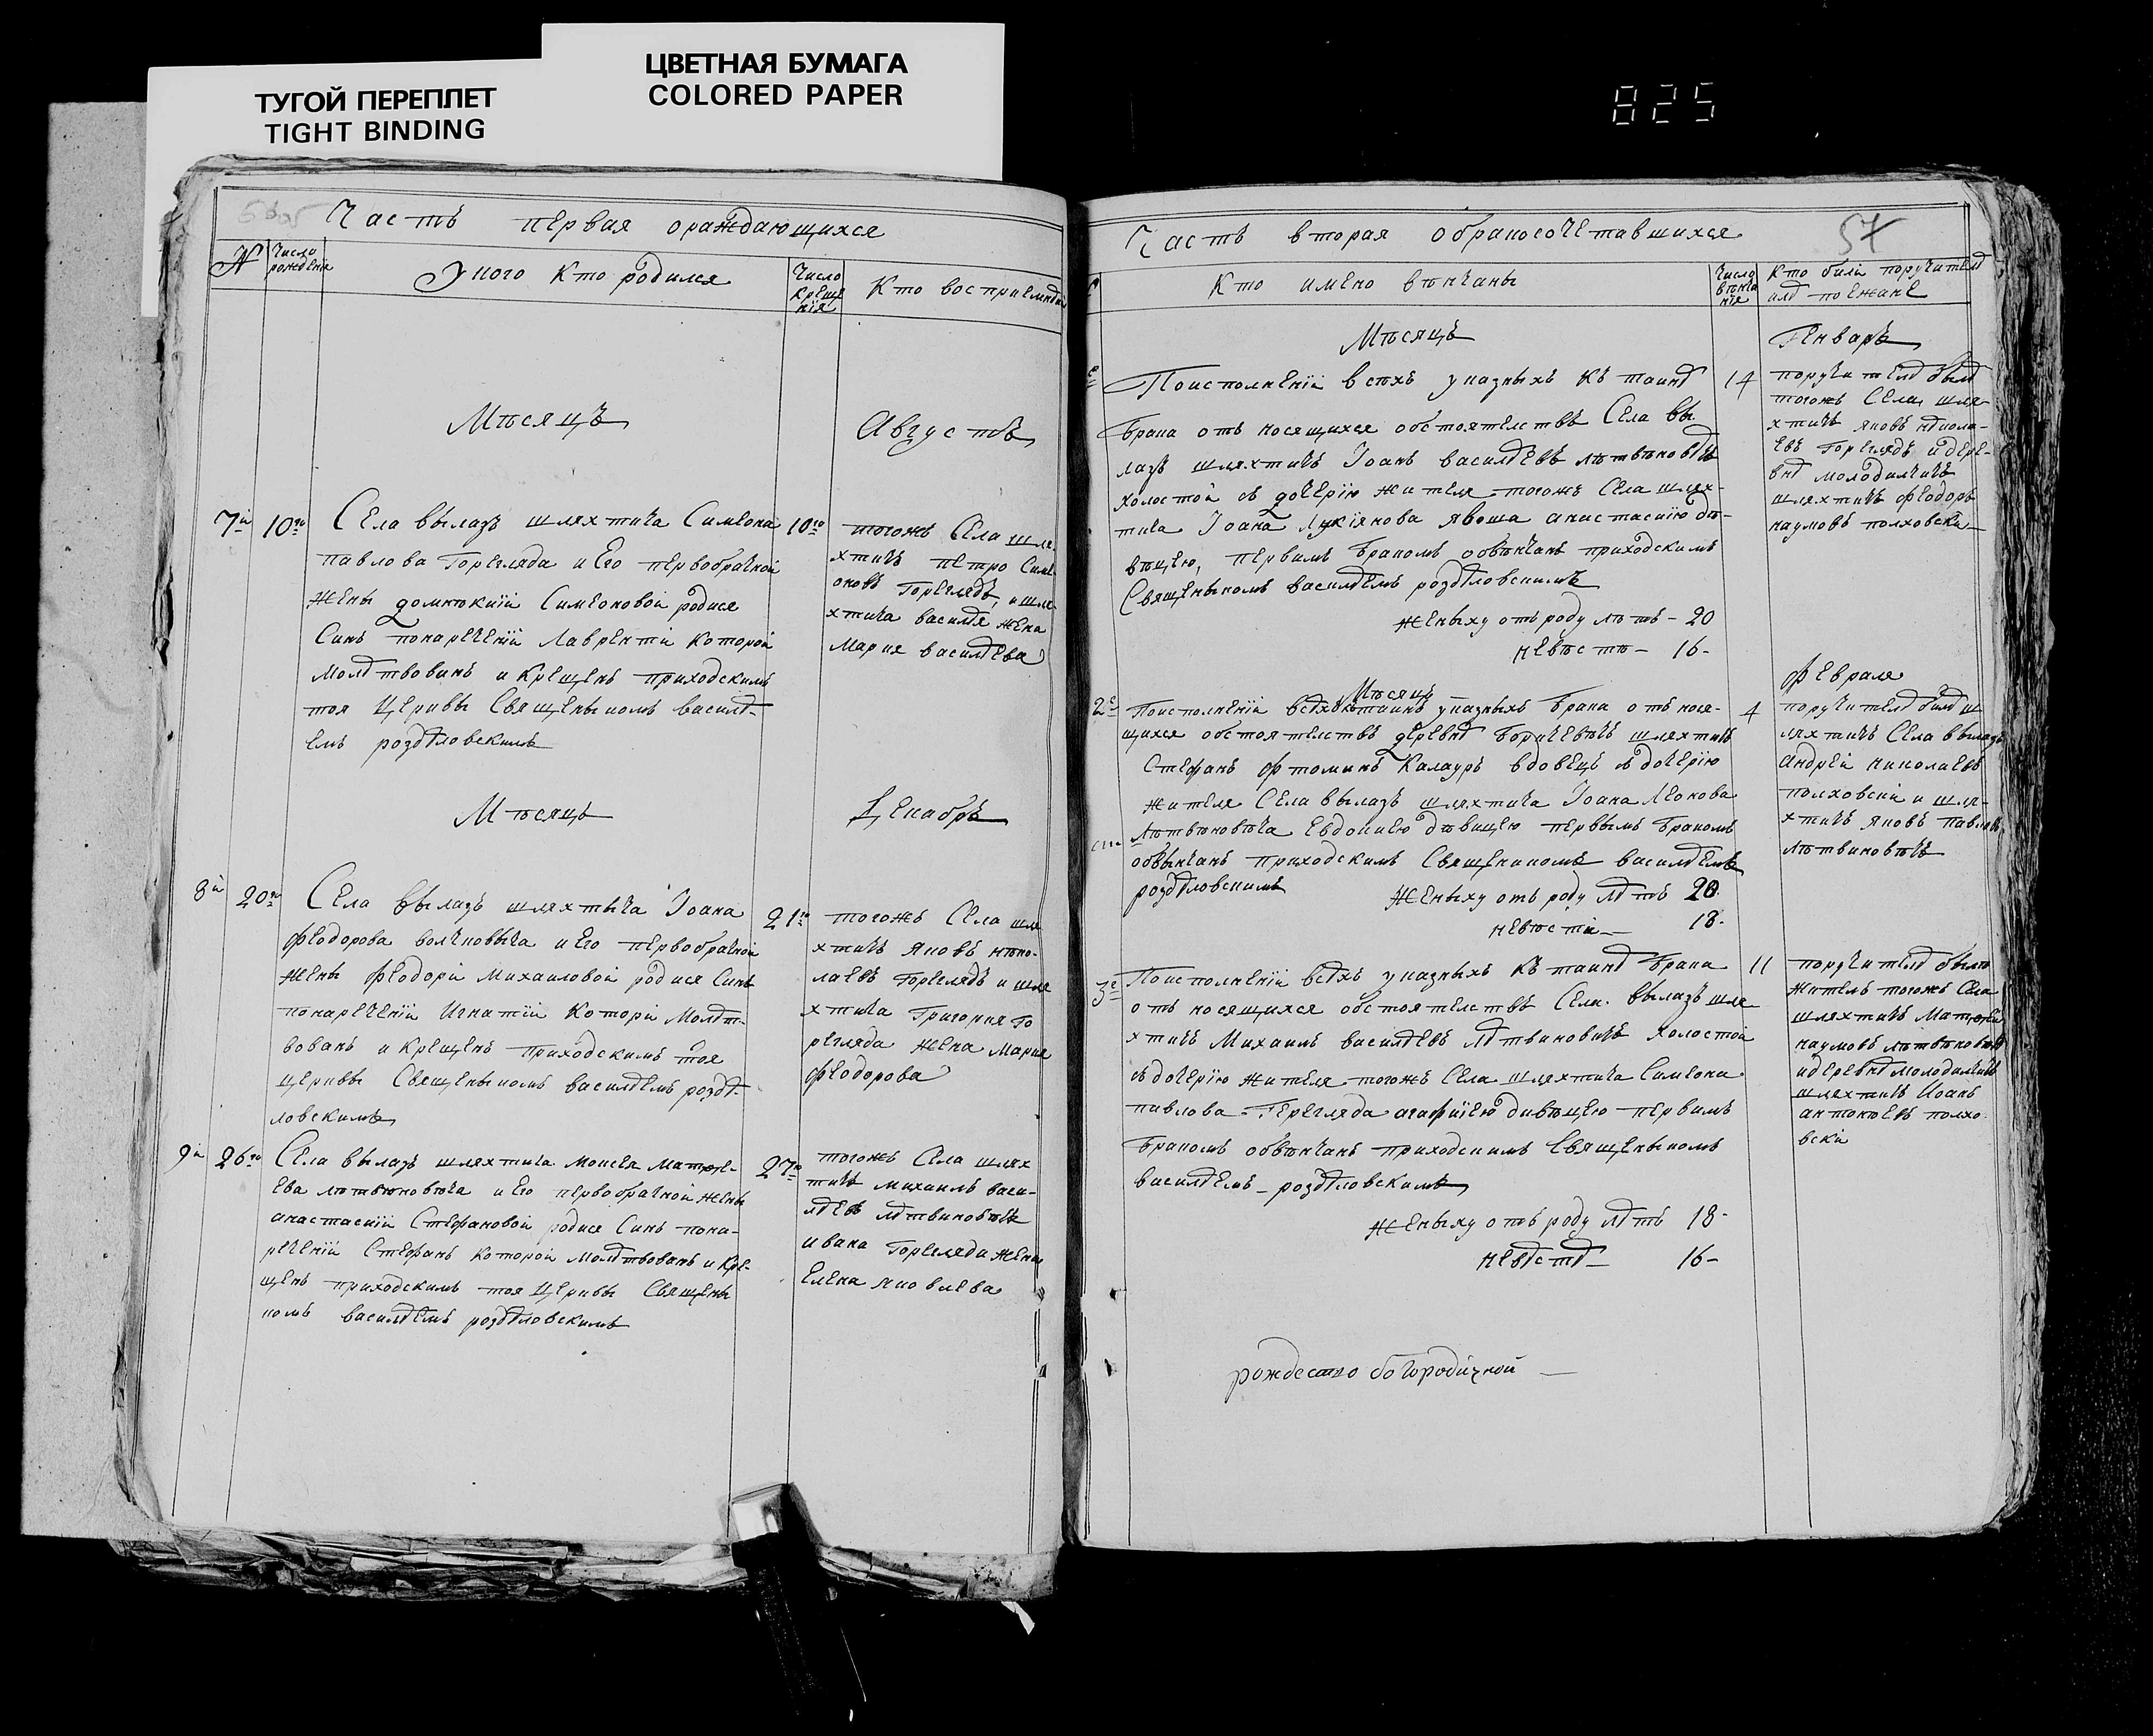 ЦВЕТНАЯ БУМАГА
COLORED PAPER
ТУГОЙ ПЕРЕПЛЕТ
TIGHT BINDING
825
Часть первая ораждающихся
N
Число рожденія
У кого кто родился
Число крещенія
Кто воспріем
Мѣсяцъ
Августъ
7й 10го
Села вылазъ шляхтича Симеона
павлова Горегляда и Его первобрачной
жены домникиіи Симеоновой родися
Синъ понареченіи Лаврентіи которой
молитвованъ и крещенъ приходскимъ
тоя церквы Священыкомъ василі-
емъ розділовскимъ
10го
тогожъ Села шля
хтичъ петро Симе
оновъ Гореглядъ, и шля
хтича василія жена
Мария василіева
Мѣсяцъ
Декабрь
8й 20го
Села вылазъ шляхтыча Іоана
феодорова волчковыча и Его первобрачной
жены феодоріи Михаиловой родися Синъ
понареченіи Игнатіи которіи Моліт-
вованъ и крещенъ приходскимъ тоя
церквы Священыкомъ василіемъ розді-
ловскимъ
21го
тогожъ Села шля
хтичъ яковъ нѣко-
лаевъ Гореглядъ и шля
хтича Григория Го
регляда жена Мария
феодорова
9й 26го
Села вылазъ шляхтича моисея матфе-
ева лѣтвѣновѣча и Его первобрачной жены
анастасиіи Стефановой родися Синъ пона-
реченіи Стефанъ которой молітвованъ и кре-
щенъ приходскимъ тоя церквы Священы
комъ василіемъ розділовскимъ
27го
тогожъ Села шлях
тичъ михаилъ васи-
ліевъ літвиновѣчъ
ивана Горегляда жена
Елена яковлева
Часть вторая обракосочетавшихся
57
Кто имено вѣнчаны
Число вѣнчанія
Кто били поручителі
илі поежане
Мѣсяцъ
Генварь
Поисполненіи всѣхъ указныхъ къ таині
брака отъ носящихся обстоятелствъ Села вы
лазъ шляхтичъ Іоанъ василіевъ лѣтвѣновічъ
холостой зъ дочерію жителя тогожъ Села шлях-
тича Іоана Лукіянова явоша анастасиію дѣ-
вѣцею, первимъ бракомъ обвѣнчанъ приходскимъ
Священыкомъ василіемъ розділовскимъ
14
поручителі былі
тогожъ Села шля
хтичъ яковъ нікола-
евъ Гореглядъ и дере-
вні молодилчичъ
шляхтичъ феодоръ
наумовъ полховски
женыху отъ роду лѣтъ - 20
невѣстѣ - 16-
Мѣсяцъ
февраля
2е
Поисполненіи всіхъ къ таині указныхъ брака отъ нося-
щихся обстоятелствъ деревні Боричевѣчъ шляхтичъ
Стефанъ фтоминъ Калауръ вдовецъ зъ дочерію
жителя Села вылазъ шляхтича Іоана Леонова
лѣтвѣновѣча Евдокиею дѣвицею первымъ бракомъ
обвѣнчанъ приходскимъ Священикомъ василіемъ
розділовскимъ
4
поручителі билі ш
ляхтичъ Села вылазъ
андреи николаевъ
полховски и шля-
хтичъ яковъ павловъ
лѣтвиновѣчъ
Женыху отъ роду літъ 20
невѣсті - 18-
3е
Поисполненіи всіхъ указныхъ къ таині брака
отъ носящихся обстоятелствъ Села вылазъ шля
хтичъ Михаилъ василіевъ літвиновичъ холостой
зъ дочерію жителя тогожъ Села шляхтича Симеона
павлова Горегляда агафіиею дивѣцею первимъ
бракомъ обвѣнчанъ приходскимъ Священыкомъ
василіемъ розділовскимъ
11
поручителі было
житель тогожъ Села
шляхтичъ Матфей
наумовъ лѣтвѣновѣчъ
и деревні молодилчичъ
шляхтичъ Иоанъ
антониевъ полхо
вски
женыху отъ роду літъ 18-
невісті - 16-
рождество богородичной